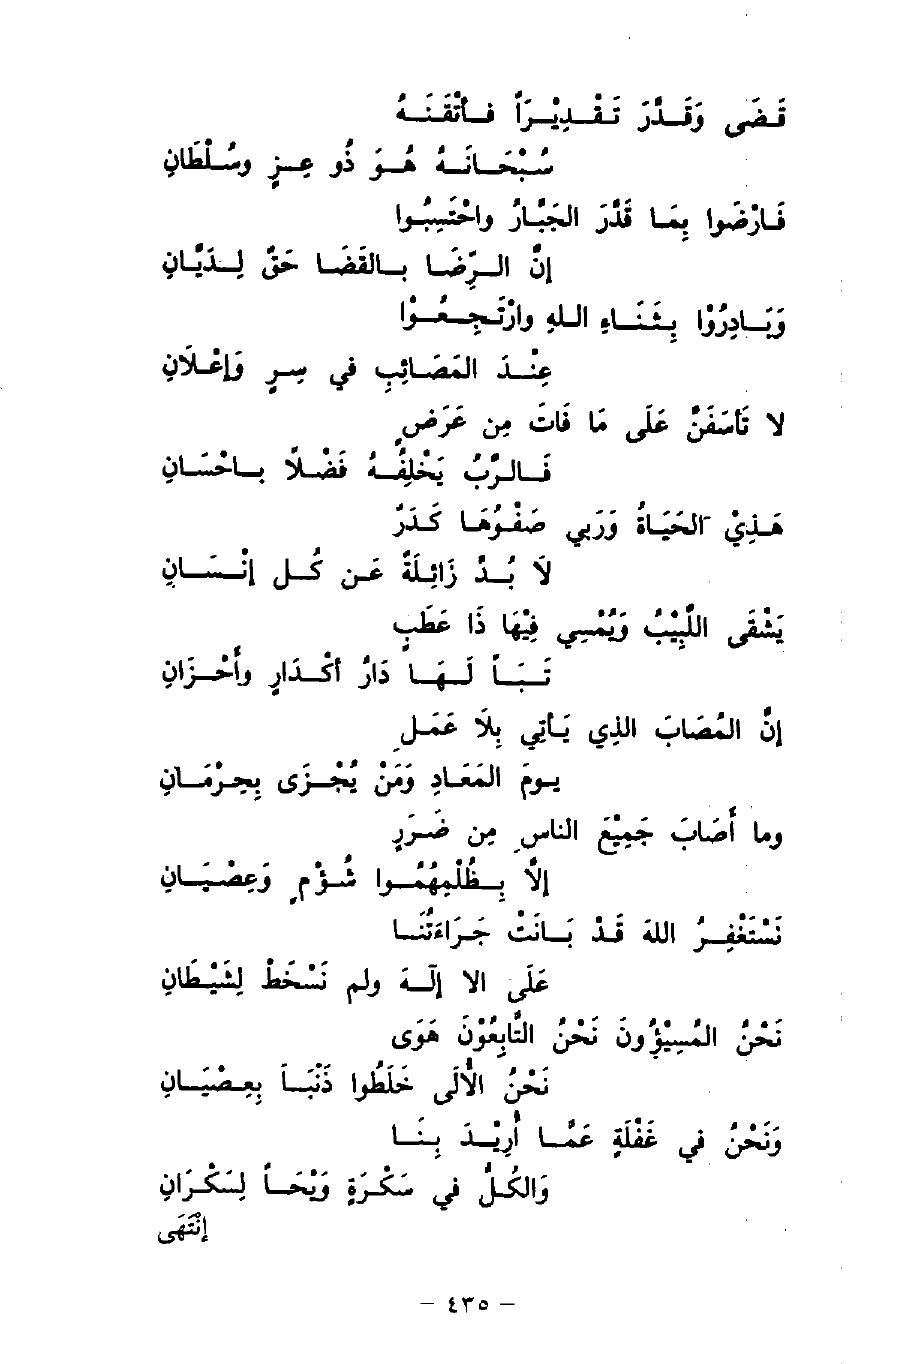 قَضَى وَقَدَّرَ تَقْدِيْرَاً فأَتْقَنَهُ
سُبْحَانَهُ هُوَ ذُو عِزٍ وسُلْطَانِ
فَارْضَوا بِمَا قَدَّرَ الجَبَّارُ واحْتَسِبُوا
إنَّ الرِّضَا بالقَضَا حَقٌ لِدَيَّانِ
وَبَادِرُوْا بِثَنَاءِ اللهِ وارْتَجِعُوْا
عِنْدَ المَصَائِبِ في سِرٍ وَإعْلَانِ
لا تَأسَفَنَّ عَلَى مَا فَاتَ مِن عَرَضٍ
فَالرَّبُ يَخْلِفُهُ فَضْلاً باحْسَانِ
هَذِيْ الحَيَاةُ وَرَبي صَفْوُهَا كَدَرٌ
لاَ بُدَّ زَائِلَةٌ عَن كُل إنْسَانِ
يَشْقَى اللَّبِيْبُ وَيُمْسِي فِيْهَا ذَا عَطَبٍ
تَبَاً لَهَا دَارُ أكْدَارٍ وأَحْزَانِ
إنَّ المُصَابَ الذِي يَأتِي بِلَا عَمَلٍ
يومَ المَعَادِ وَمَنْ يُجْزَى بِحِرْمَانِ
وما أَصَابَ جَمِيْعَ الناسِ مِن ضَرَرٍ
إلاَّ بِظُلْمِهُمُوا شُؤْمٍ وَعِصْيَانِ
نَسْتَغْفِرُ اللهَ قَدْ بَانَتْ جَرَاءَتُنَا
عَلَى الا إلَهَ ولم نَسْخَطْ لِشَيْطَانِ
نَحْنُ المُسِيْؤُونَ نَحْنُ التَّابِعُوْنَ هَوَى
نَحْنُ الأُلَى خَلَطُوا ذَنْبَاً بِعِصْيَانِ
وَنَحْنُ في غَفْلَةٍ عَمَّا أُرِيْدَ بِنَا
وَالكُلُّ في سَكْرَةٍ وَيْحَاً لِسَكْرَانِ
إنْتَهَى
– ٤٣٥ –